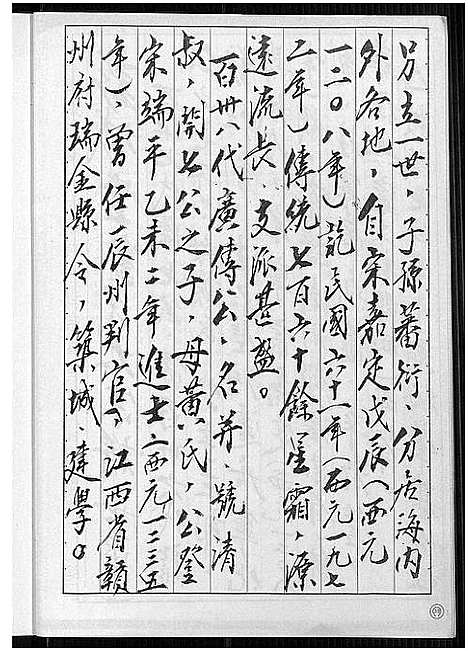 另立一世，子孫蕃衍，分居海內
外各地，自宋嘉定戊辰（西元
一二０八年）訖民國六十一年（西元一九七
二年）傳統七百六十餘星霜，源
遠流長，支派甚盛。
百卅八代廣傳公，名芹，號清
叔，開七公之子，母黃氏，公登
宋端平乙未二年進士（西元一二三五
年），曾任辰州判官，江西省贛
州府瑞金縣令，築城、建學。